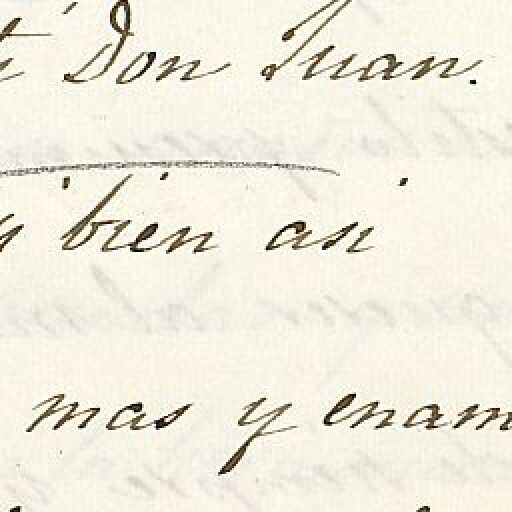 Don Juan.
bien asi
mas y enam